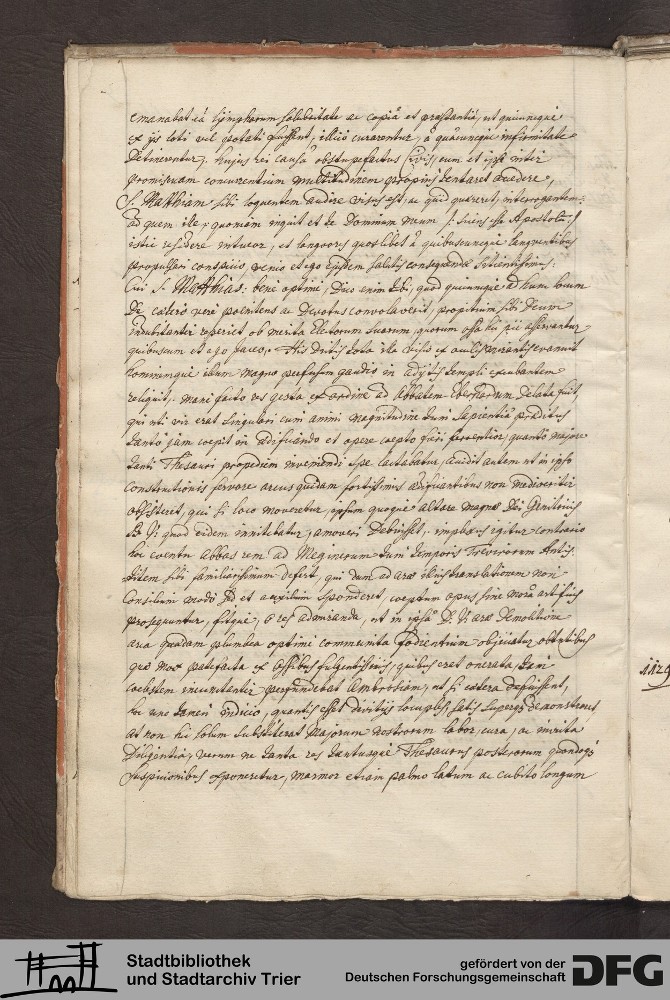 emanabat eâ lympharum salubritate ac copiâ et praestantiâ, ut quicunque
ex ijs loti vel potati fuissent, illicò curarentur, à quâcunque infirmitate
Detinerentur; hujus rei causâ obstupefactus cum et ipse inter
promiscuam concurrentium multitudinem propius tentaret accedere,
S. Matthiam sibi loquentem audire visus est, ac quid quaereret, interrogantem:
ad quem ille; quoniam inquit et te Dominum meum
istic residere intueor, et languores quoslibet à quibuscunque languentibus
propulsari conspicio, venio et ego ejusdem salutis consequendae
Cui S. Matthias: bene optime, Dico enim tibi, quod quicunque ad hunc locum
De caetero verè poenitens ac Devotus convolaverit, propitium sibi Deum
indubitanter reperiet ob merita Electorum suorum, quorum ossa hic piè asservantur
quibuscum et ego jaceo. His Dictis tota illa visio ex oculis evanuit
hominemque illum magno perfusum gaudio in adytis templi excubantem
reliquit. manè facto res gesta ex ordine ad Abbatem Eberhardum Delata fuit,
qui uti vir erat singulari cum animi magnitudine tum sapientiâ praeditus
tantò jam coepit in aedificando et opere coepto fieri ferventior, quantò majore
tanti Thesauri propediem inveniendi spe lactabatur, accidit autem ut in ipso
constructionis fervore arcus quidam fortissimus aedificantibus non mediocriter
obsisteret, qui si loco moveretur, ipsum quoque altare magnae Dei Genitricis
quod eidem innitebatur, amoveri Debuisset, implexus igitur contrario
hoc eventu Abbas rem ad Meginerum tum temporis Trevirorum Antis-
titem sibi familiarissimum defert, qui dum ad arae illius translationem non
Consilium modò sed et auxilium sponderet, coeptum opus sine mora artifices
prosequuntur, fitque, ô res admiranda, ut in ipsâ arae Demolitione
arca quaedam plumbea optimè communita fodientium objiciatur obtutibus
quae mox patefacta ex ossibus fulgentissimis, quibus erat onerata, tam
coelestem incunctanter perfundebat Ambrosiam, ut si caetera defuissent,
hoc uno tamen indicio, quantis esset divitijs locuples, satis superque Demonstraret
at non hic solum substiterat Majorum nostrorum labor, cura, ac invicta
Diligentia, verum ne tanta res tantusque Thesaurus posterorum quandoque
suspicionibus exponeretur, marmor etiam palmo latum ac cubito longum
1129
Stadtbibliothek
und Stadtarchiv Trier
gefördert von der
Deutschen Forschungsgemeinschaft
DFG